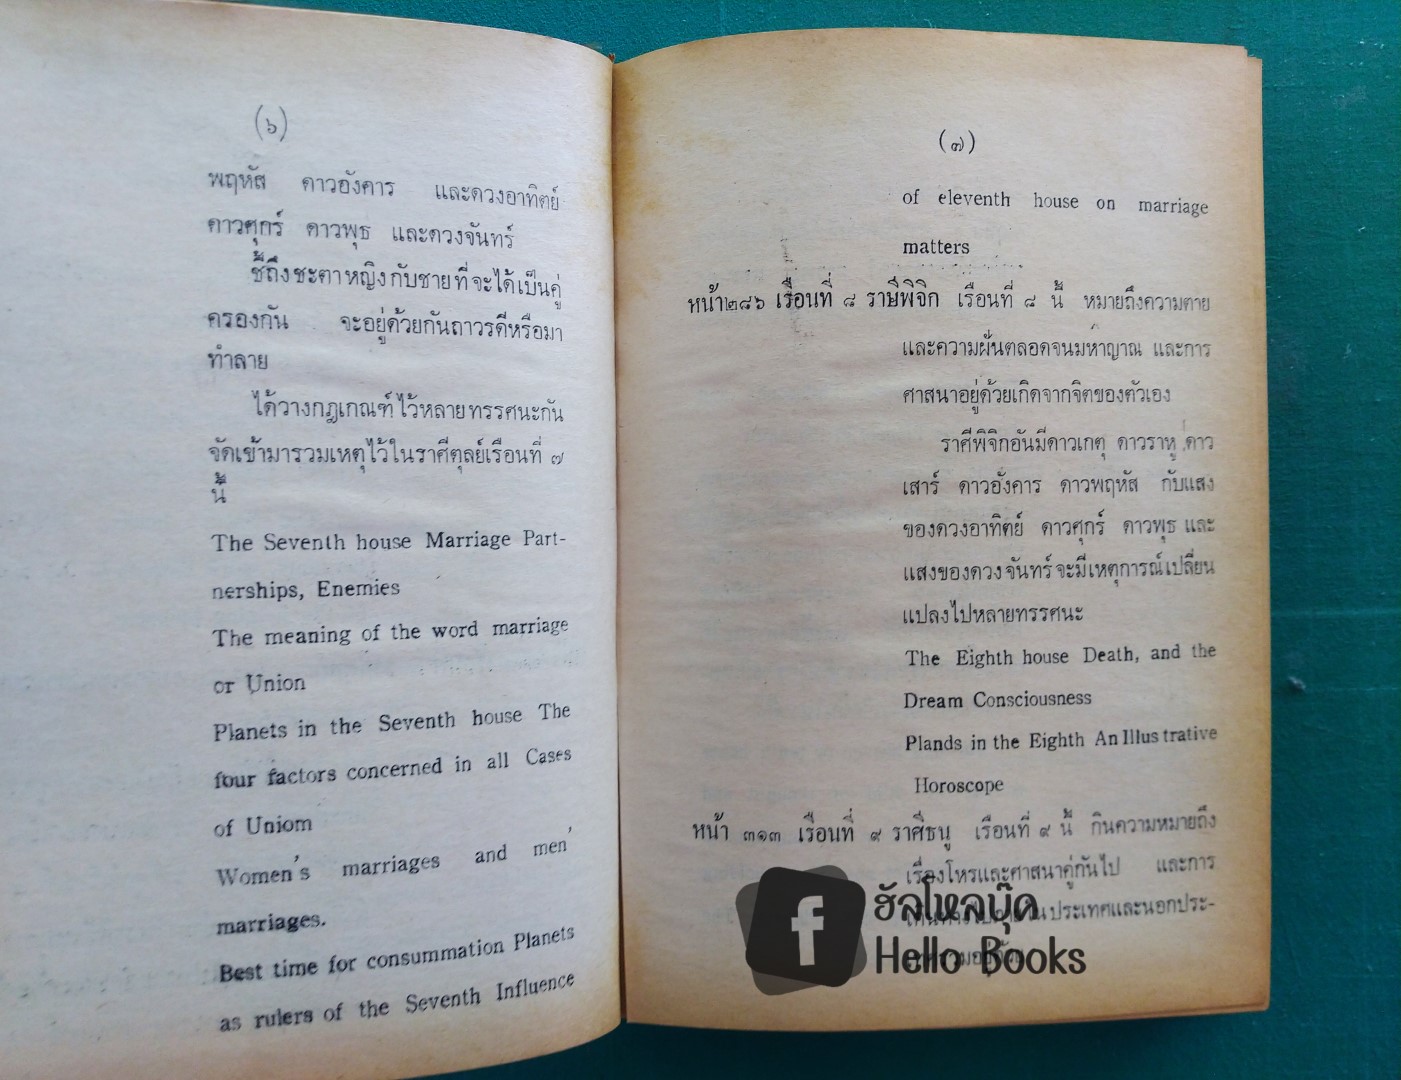 (๖)
พฤหัส ดาวอังคาร และดวงอาทิตย์
ดาวศุกร์ ดาวพุธ และดวงจันทร์
ชี้ถึงชะตาหญิงกับชายที่จะได้เป็นคู่
ครองกัน จะอยู่ด้วยกันถาวรดีหรือมา
ทำลาย
ได้วางกฎเกณฑ์ไว้หลายทรรศนะกัน
จัดเข้ามารวมเหตุไว้ในราศีตุลย์เรือนที่ ๗
นี้
The Seventh house Marriage Part-
nerships, Enemies
The meaning of the word marriage
or Union
Planets in the Seventh house The
four factors concerned in all Cases
of Uniom
Women's marriages and men'
marriages.
Best time for consummation Planets
as rulers of the Seventh Influence
(๗)
of eleventh house on marriage
matters
หน้า๒๘๖ เรือนที่ ๘ ราษีพิจิก เรือนที่ ๘ นี้ หมายถึงความตาย
และความฝันตลอดจนมหาญาณ และการ
ศาสนาอยู่ด้วยเกิดจากจิตของตัวเอง
ราศีพิจิกอันมีดาวเกตุ ดาวราหู ดาว
เสาร์ ดาวอังคาร ดาวพฤหัส กับแสง
ของดวงอาทิตย์ ดาวศุกร์ ดาวพุธ และ
แสงของดวงจันทร์จะมีเหตุการณ์เปลี่ยน
แปลงไปหลายทรรศนะ
The Eighth house Death, and the
Dream Consciousness
Plands in the Eighth An Illustrative
Horoscope
หน้า ๓๑๓ เรือนที่ ๙ ราศีธนู เรือนที่ ๙ นี้ กินความหมายถึง
เรื่องโหรและศาสนาคู่กันไป และการ
ประเทศและนอกประ-
f ฮัลโหลบุ๊ค
Hello Books